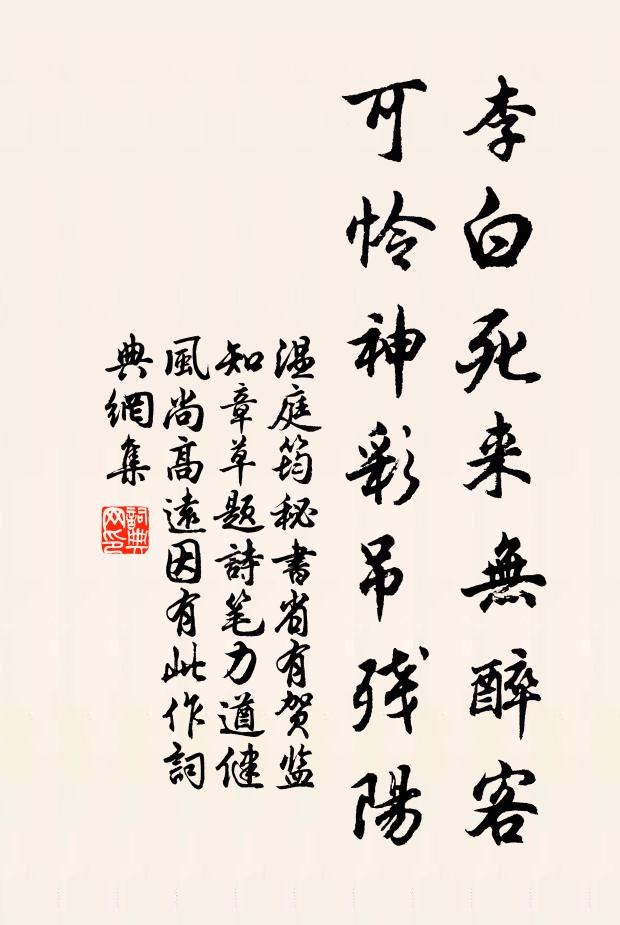 李白死来無醉客
可怜神彩吊残陽
温庭筠秘書省有贺监
知章草题詩笔力遒健
風尚高遠因有此作詞
典網集
詞典网印